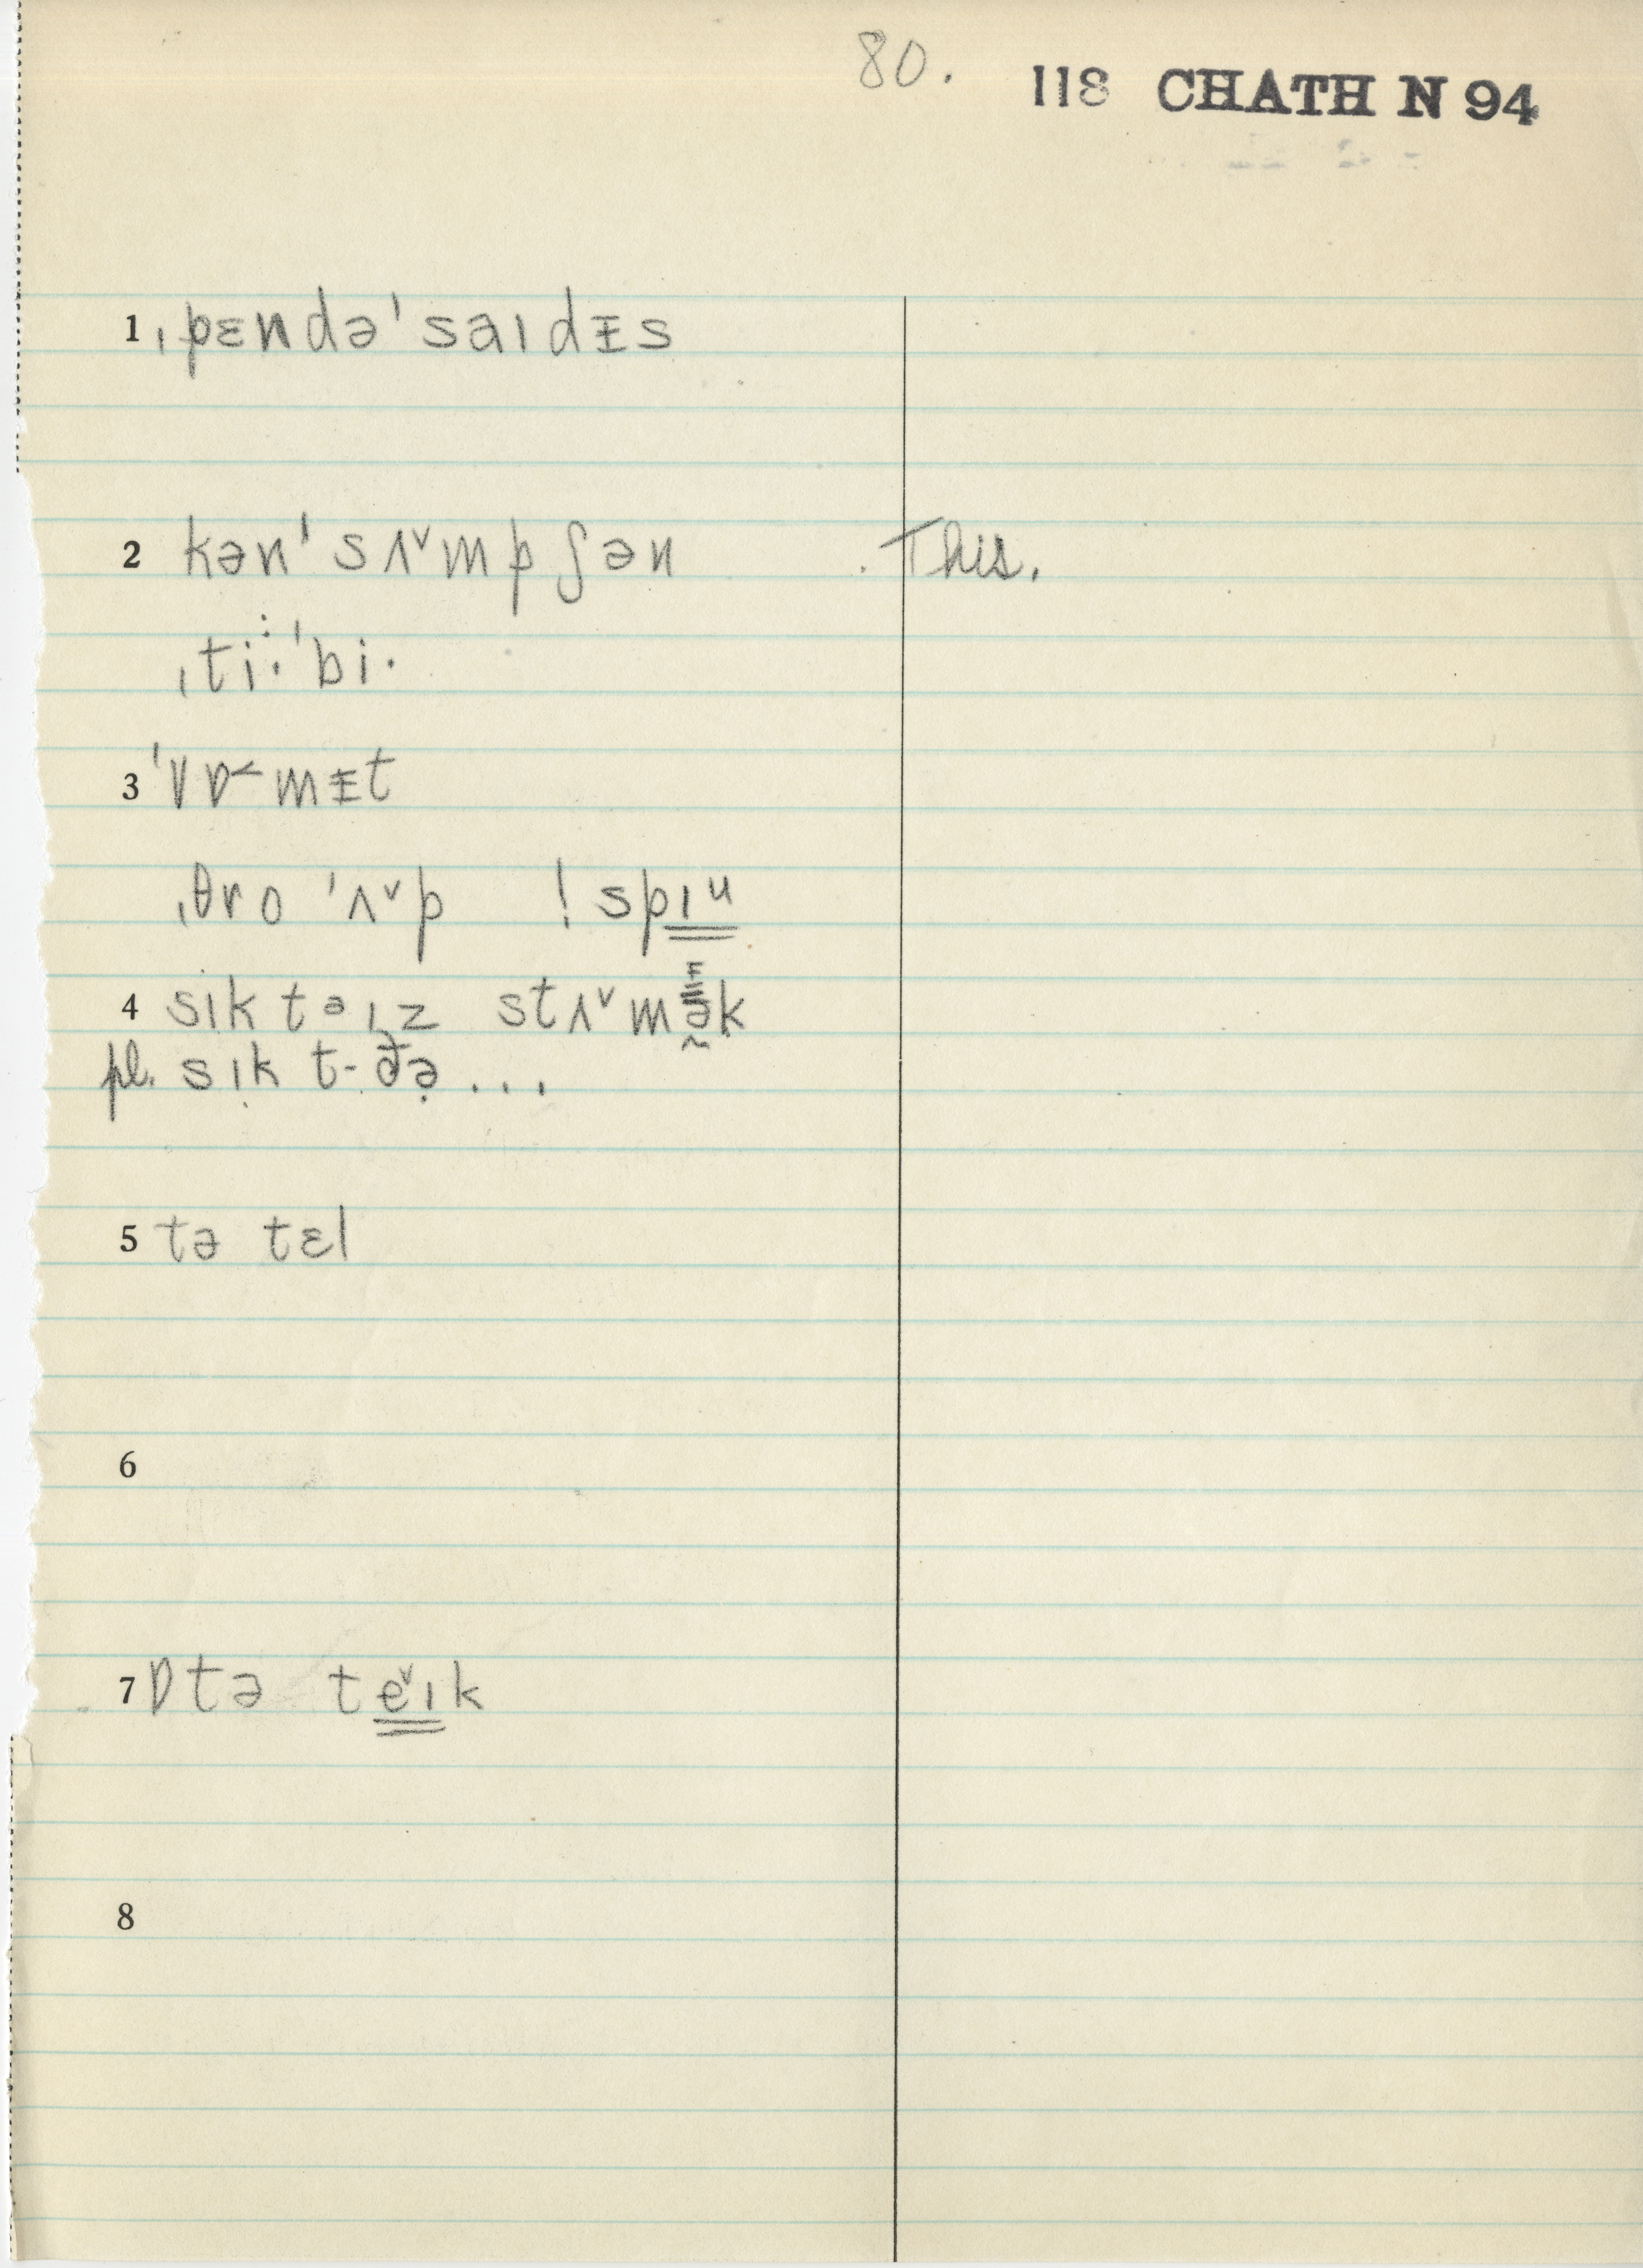 80. 118 CHATH N 94
1 ˌpɛndə'saɪdᵻs
2 kən'sʌ˅mpʃən This.
ˌti·'bi·
3 'vɒ˂mᵻt
ˌθro 'ʌ˅p ! spɪu
4 sɪk təɪz stʌ˅mək
pl. sɪk t-ðə...
5 tə tɛl
6
7 ɒtə te˅ɪk
8